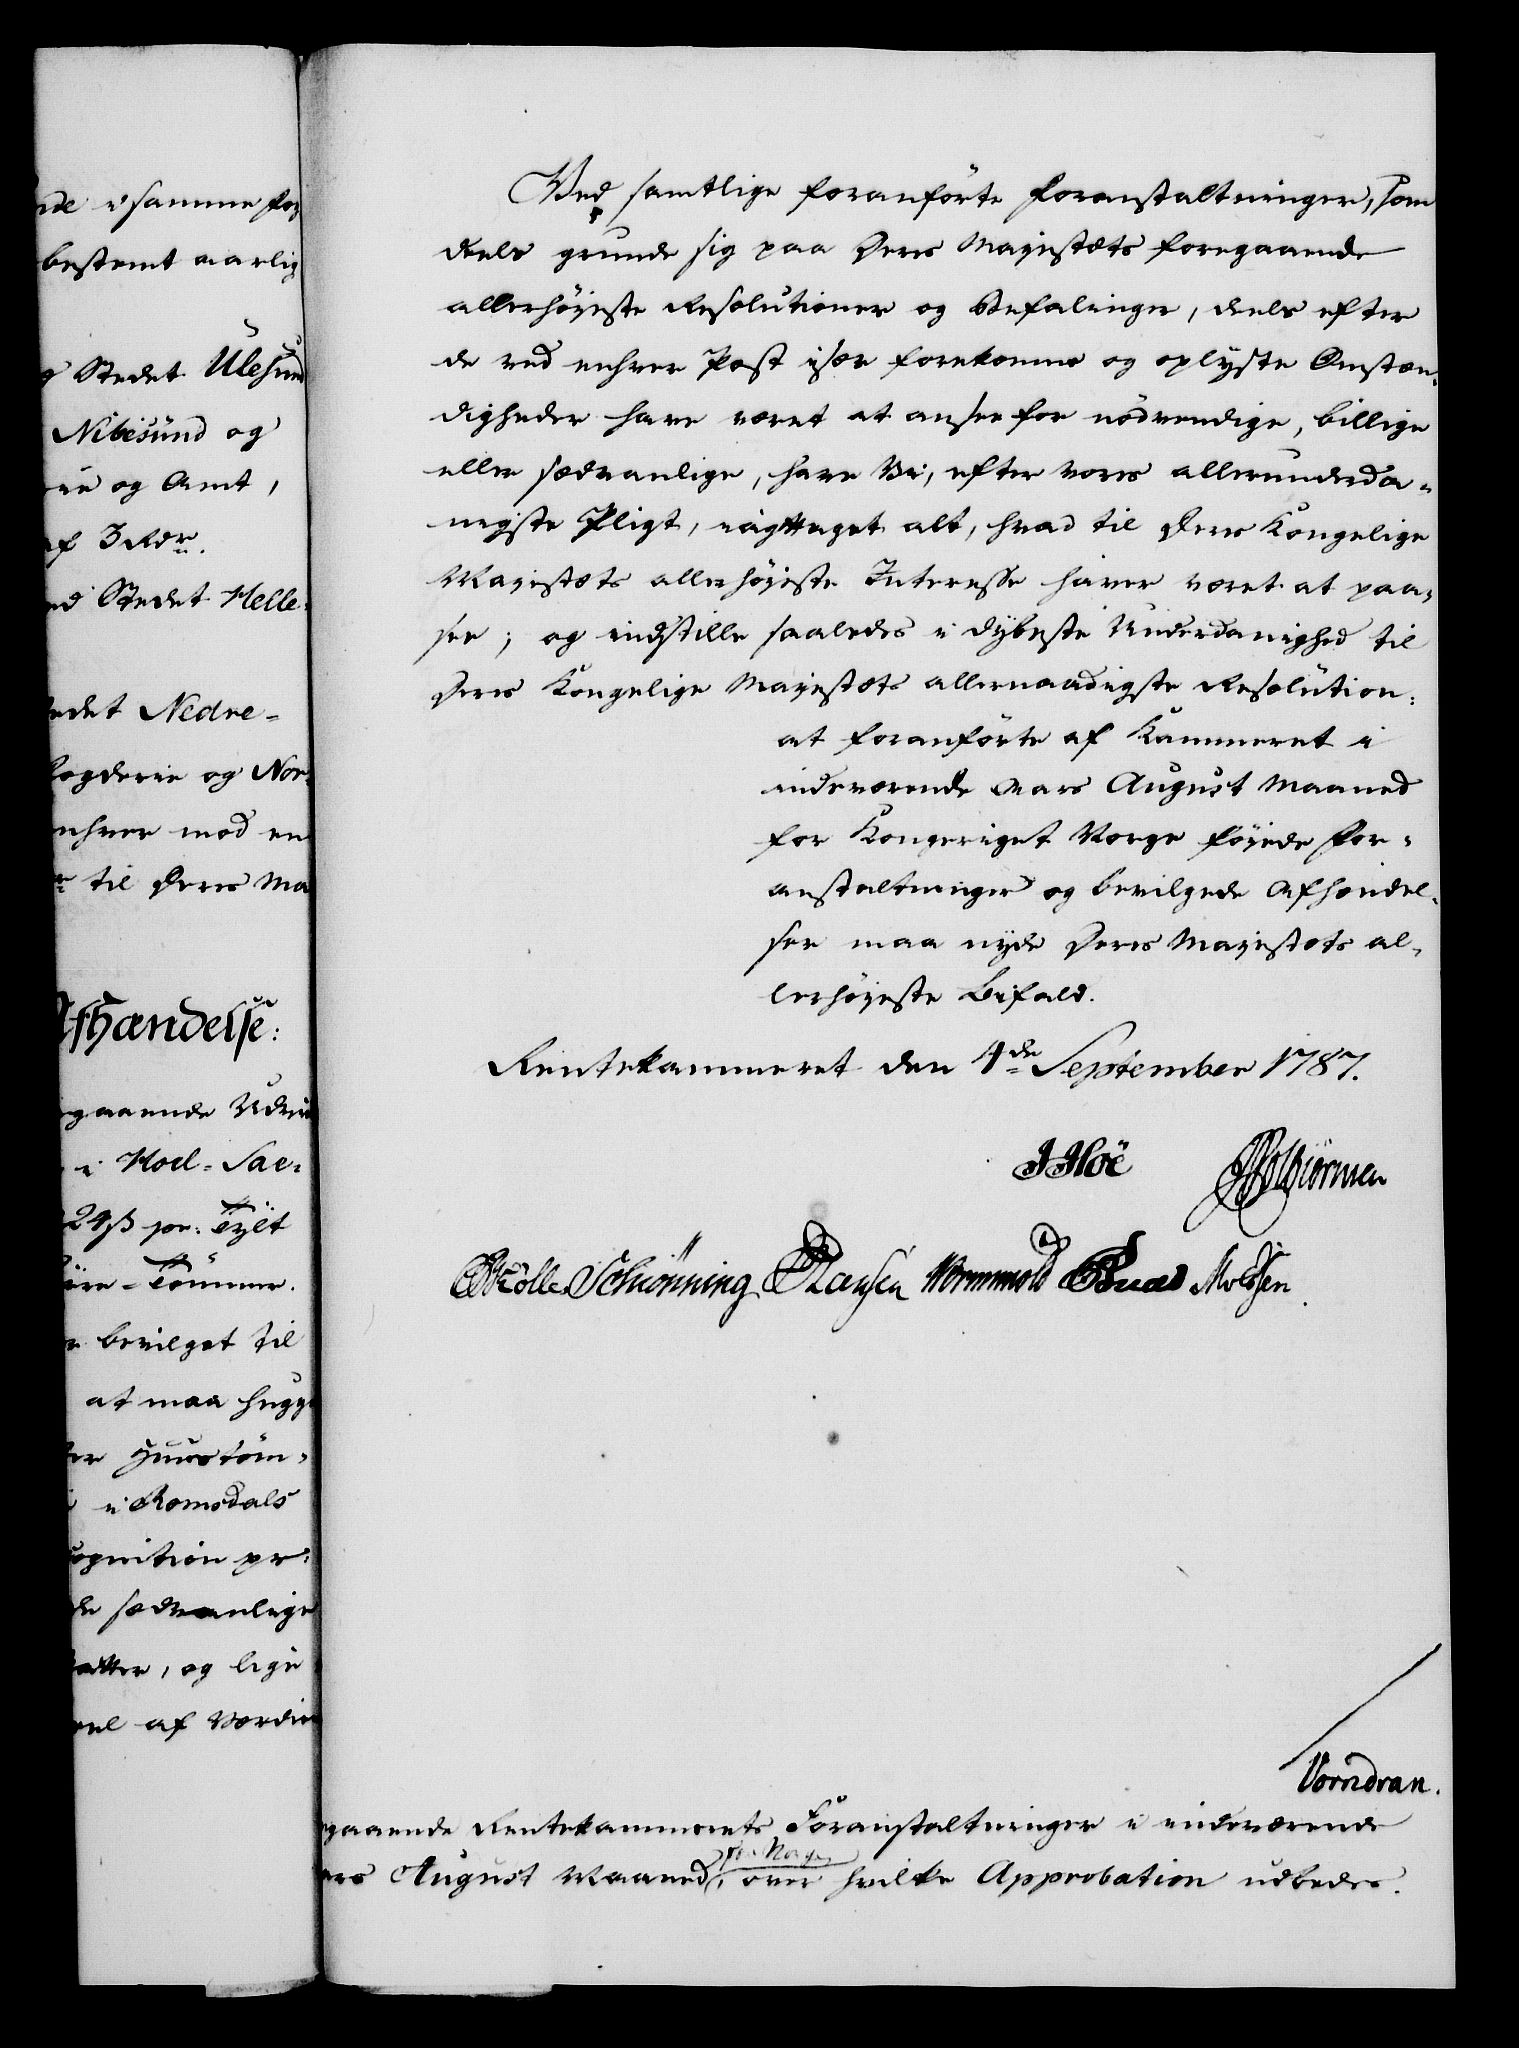 de i samme for
bestemt aarlig
Stedet Ulesund
Nibesund og
rie og Amt,
af 3 Rdr.
ed Stedet Helle-
edet Nedre-
ogderie og Nor-
enhver mod en
til Deres Ma
Afhændelse:
gaaende Udvii
i Hoel-Sae-
24 β pr: Tylt
-Tømmer.
bevilget til
at maa hugge
er Huustøm-
i Romsdals
cognition pr:
de sædvanlige
atter, og lige
eel af Værdie
Ved samtlige foranførte Foranstaltninger, som
deels grunde sig paa Deres Majestæts foregaaende
allerhøjeste Resolutioner og Befalinger, deels efter
de ved enhver Post især forekomne og oplyste Omstæn-
digheder have været at ansee for nødvendige, billige
eller sædvanlige, have Vi, efter vores allerunderda-
nigste Pligt, iagttaget alt, hvad til Deres Kongelige
Majestæts allerhøjeste Interesse haver været at paa-
see; og indstille saaledes i dybeste Underdanighed til
Deres Kongelige Majestæts allernaadigste Resolution:
at foranførte af Kammeret i
indeværende Aars August Maaned
for Kongeriget Norge føjede For-
anstaltninger og bevilgede Afhændel-
ser maa nyde Deres Majestæts al-
lerhøjeste Bifald.
Rentekammeret den 4de September 1787.
JHoë
Schiønning Hansen Wormskiold
Vorndran.
gaaende Rentekammerets Foranstaltninger i indeværende
for Norge
ars August Maaned, over hvilke Approbation udbedes.